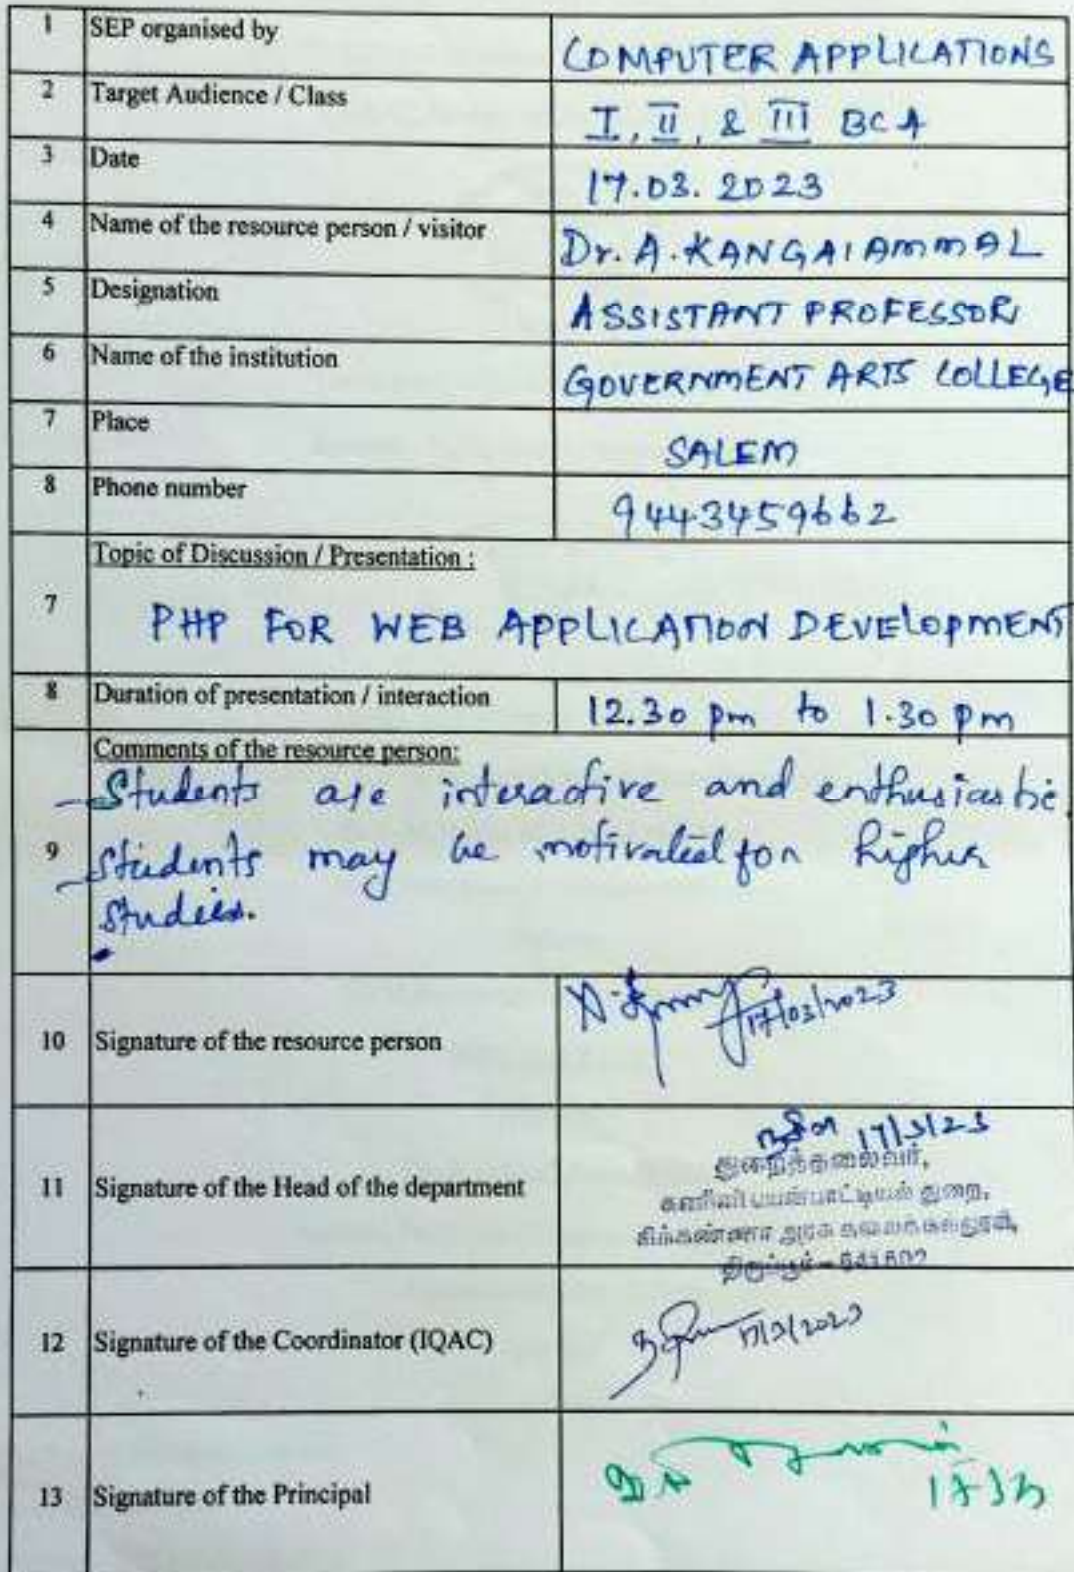 1 SEP organised by COMPUTER APPLICATIONS
2 Target Audience / Class I, II, & III BCA
3 Date 17.03.2023
4 Name of the resource person / visitor Dr. A. KANGAIAMMAL
5 Designation ASSISTANT PROFESSOR
6 Name of the institution GOVERNMENT ARTS COLLEGE
7 Place SALEM
8 Phone number 9443459662
Topic of Discussion / Presentation :
7 PHP FOR WEB APPLICATION DEVELOPMENT
8 Duration of presentation / interaction 12.30 pm to 1.30 pm
Comments of the resource person:
- Students are interactive and enthusiastic.
9 - Students may be motivated for higher
studies.
17/03/2023
10 Signature of the resource person
17/3/23
துறைத்தலைவர்,
11 Signature of the Head of the department
கணினி பயன்பாட்டியல் துறை,
அரசு கலைக்கல்லூரி,
திருப்பூர் - 641602
12 Signature of the Coordinator (IQAC) 17/3/2023
13 Signature of the Principal